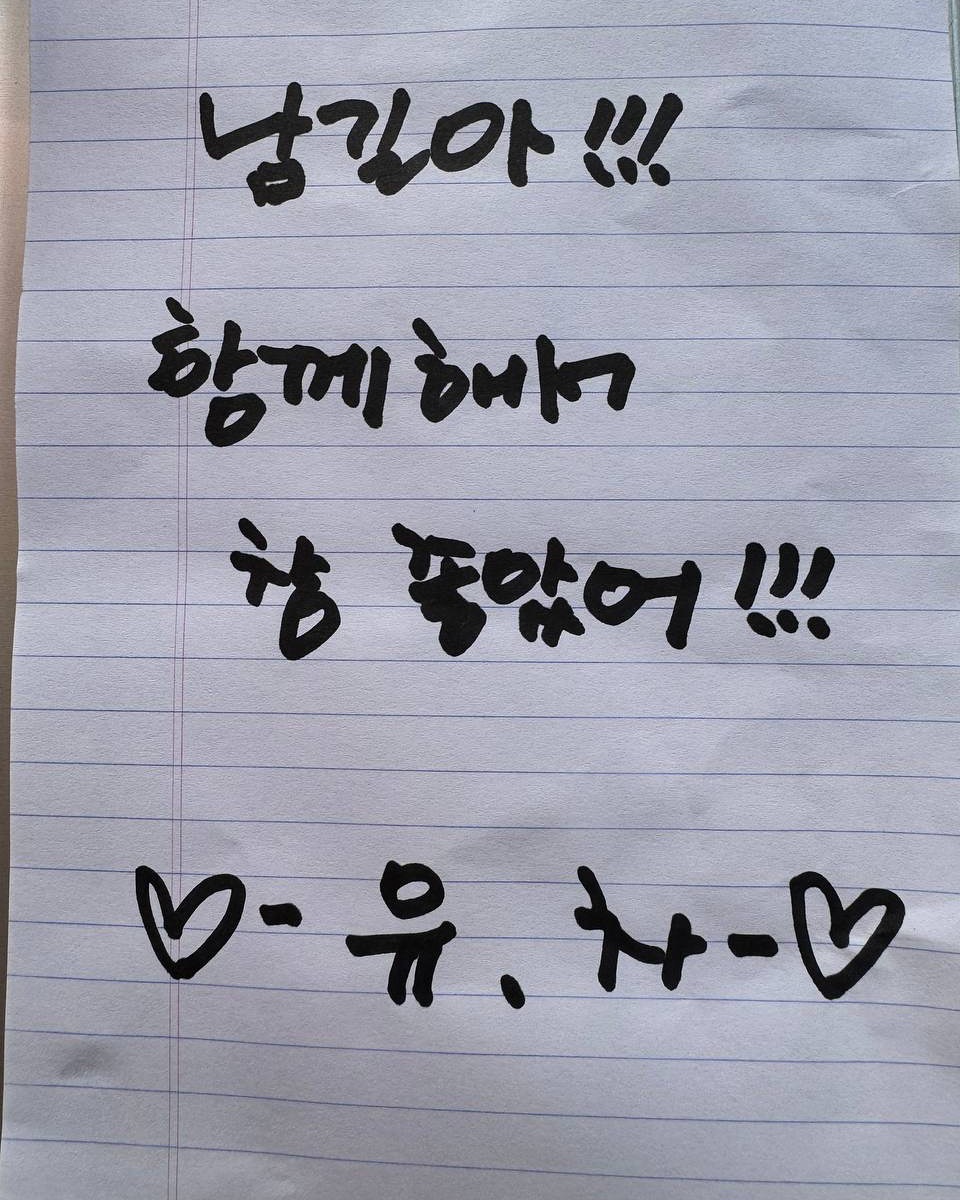 남길아!!!
함께해서
참 좋았어!!!
♡-유. 차-♡